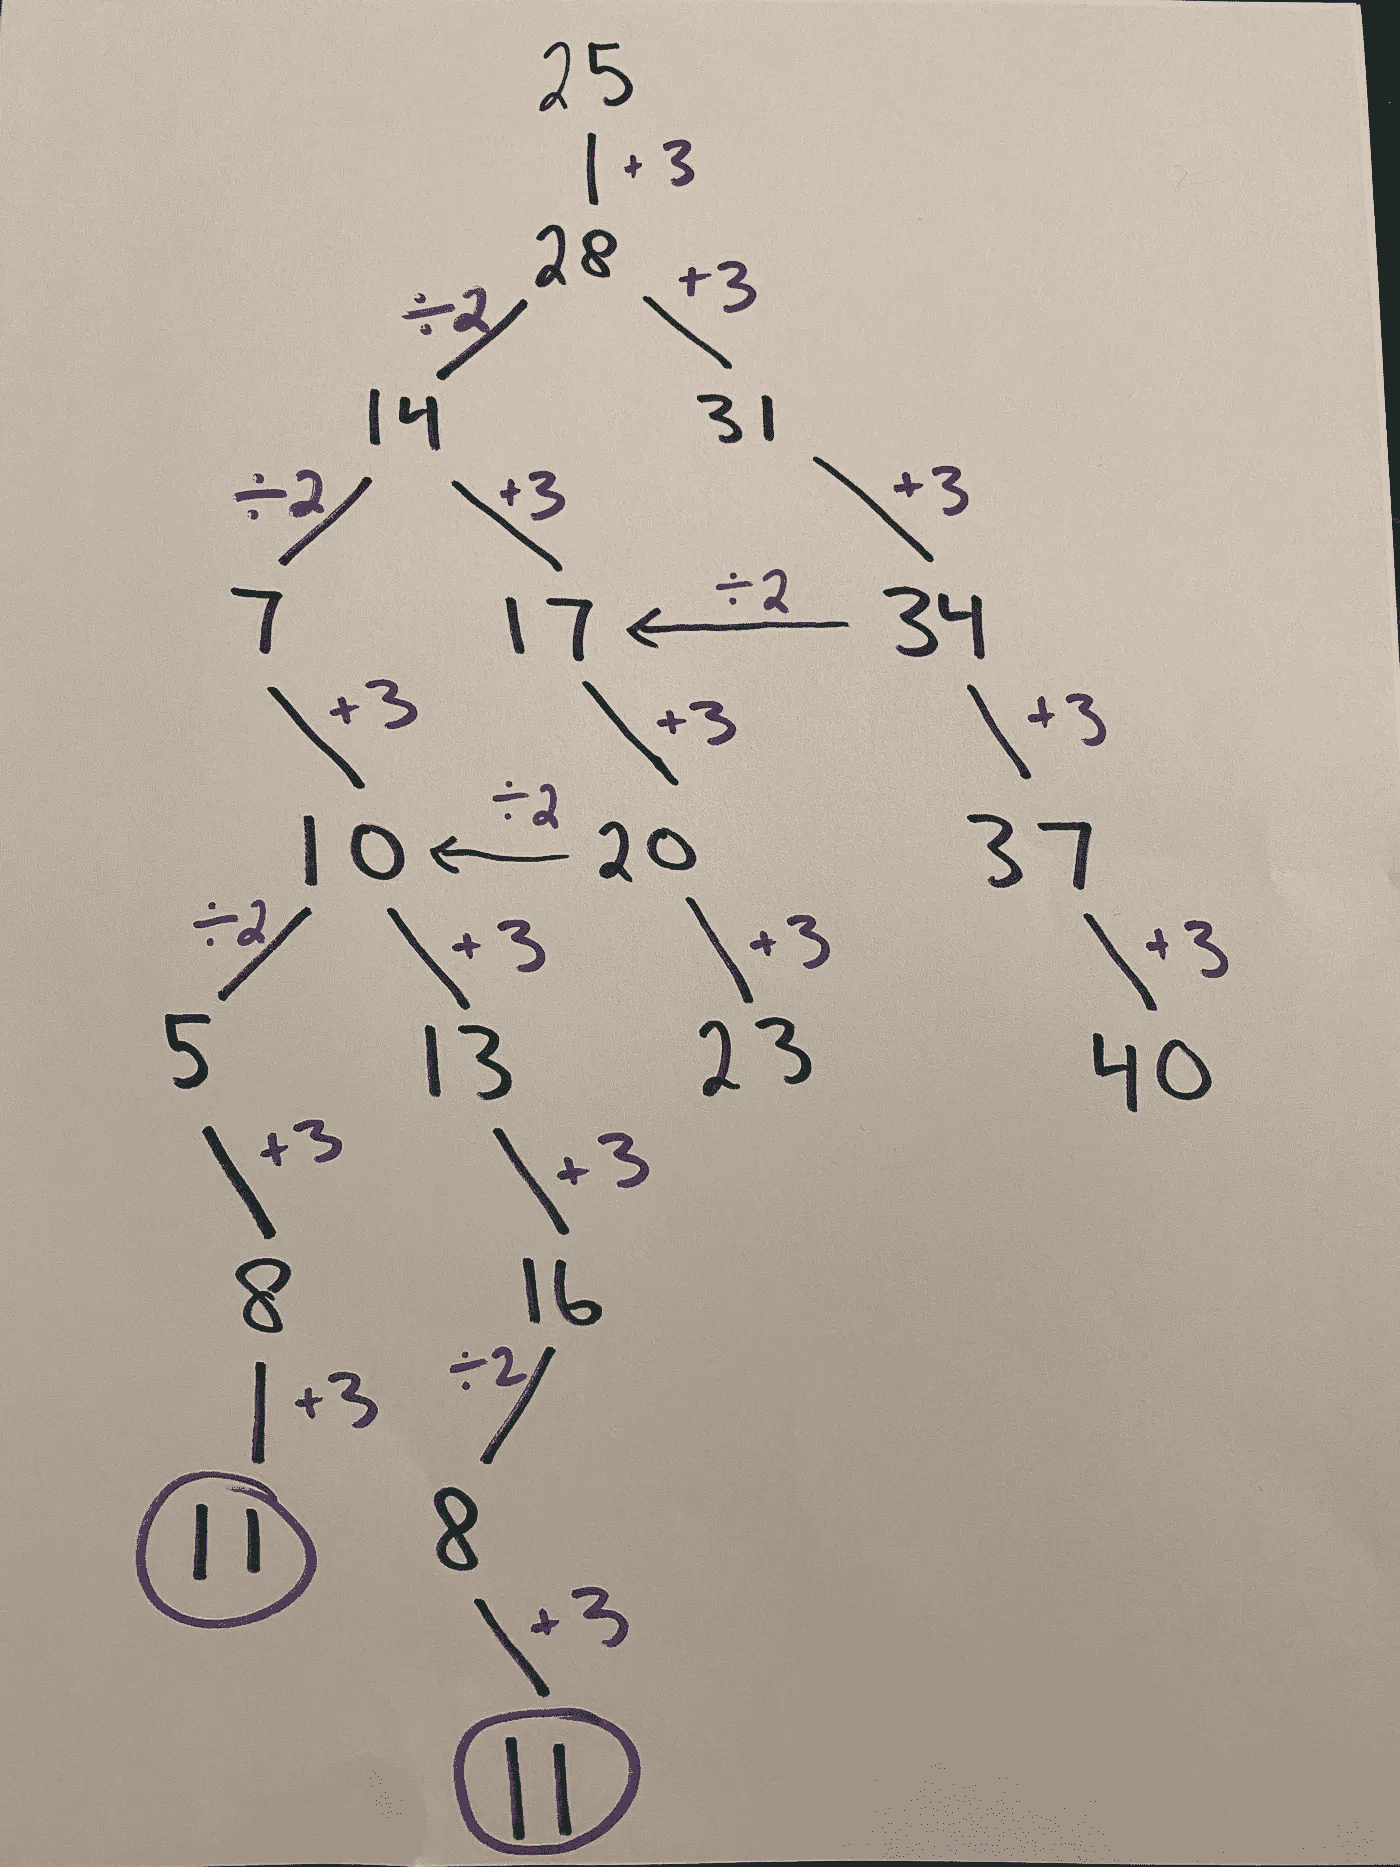 25
+3
28
÷2 +3
14 31
÷2 +3 +3
7 17 ÷2 34
+3 +3 +3
10 ÷2 20 37
÷2 +3 +3 +3
5 13 23 40
+3 +3
8 16
+3 ÷2
11 8
+3
11